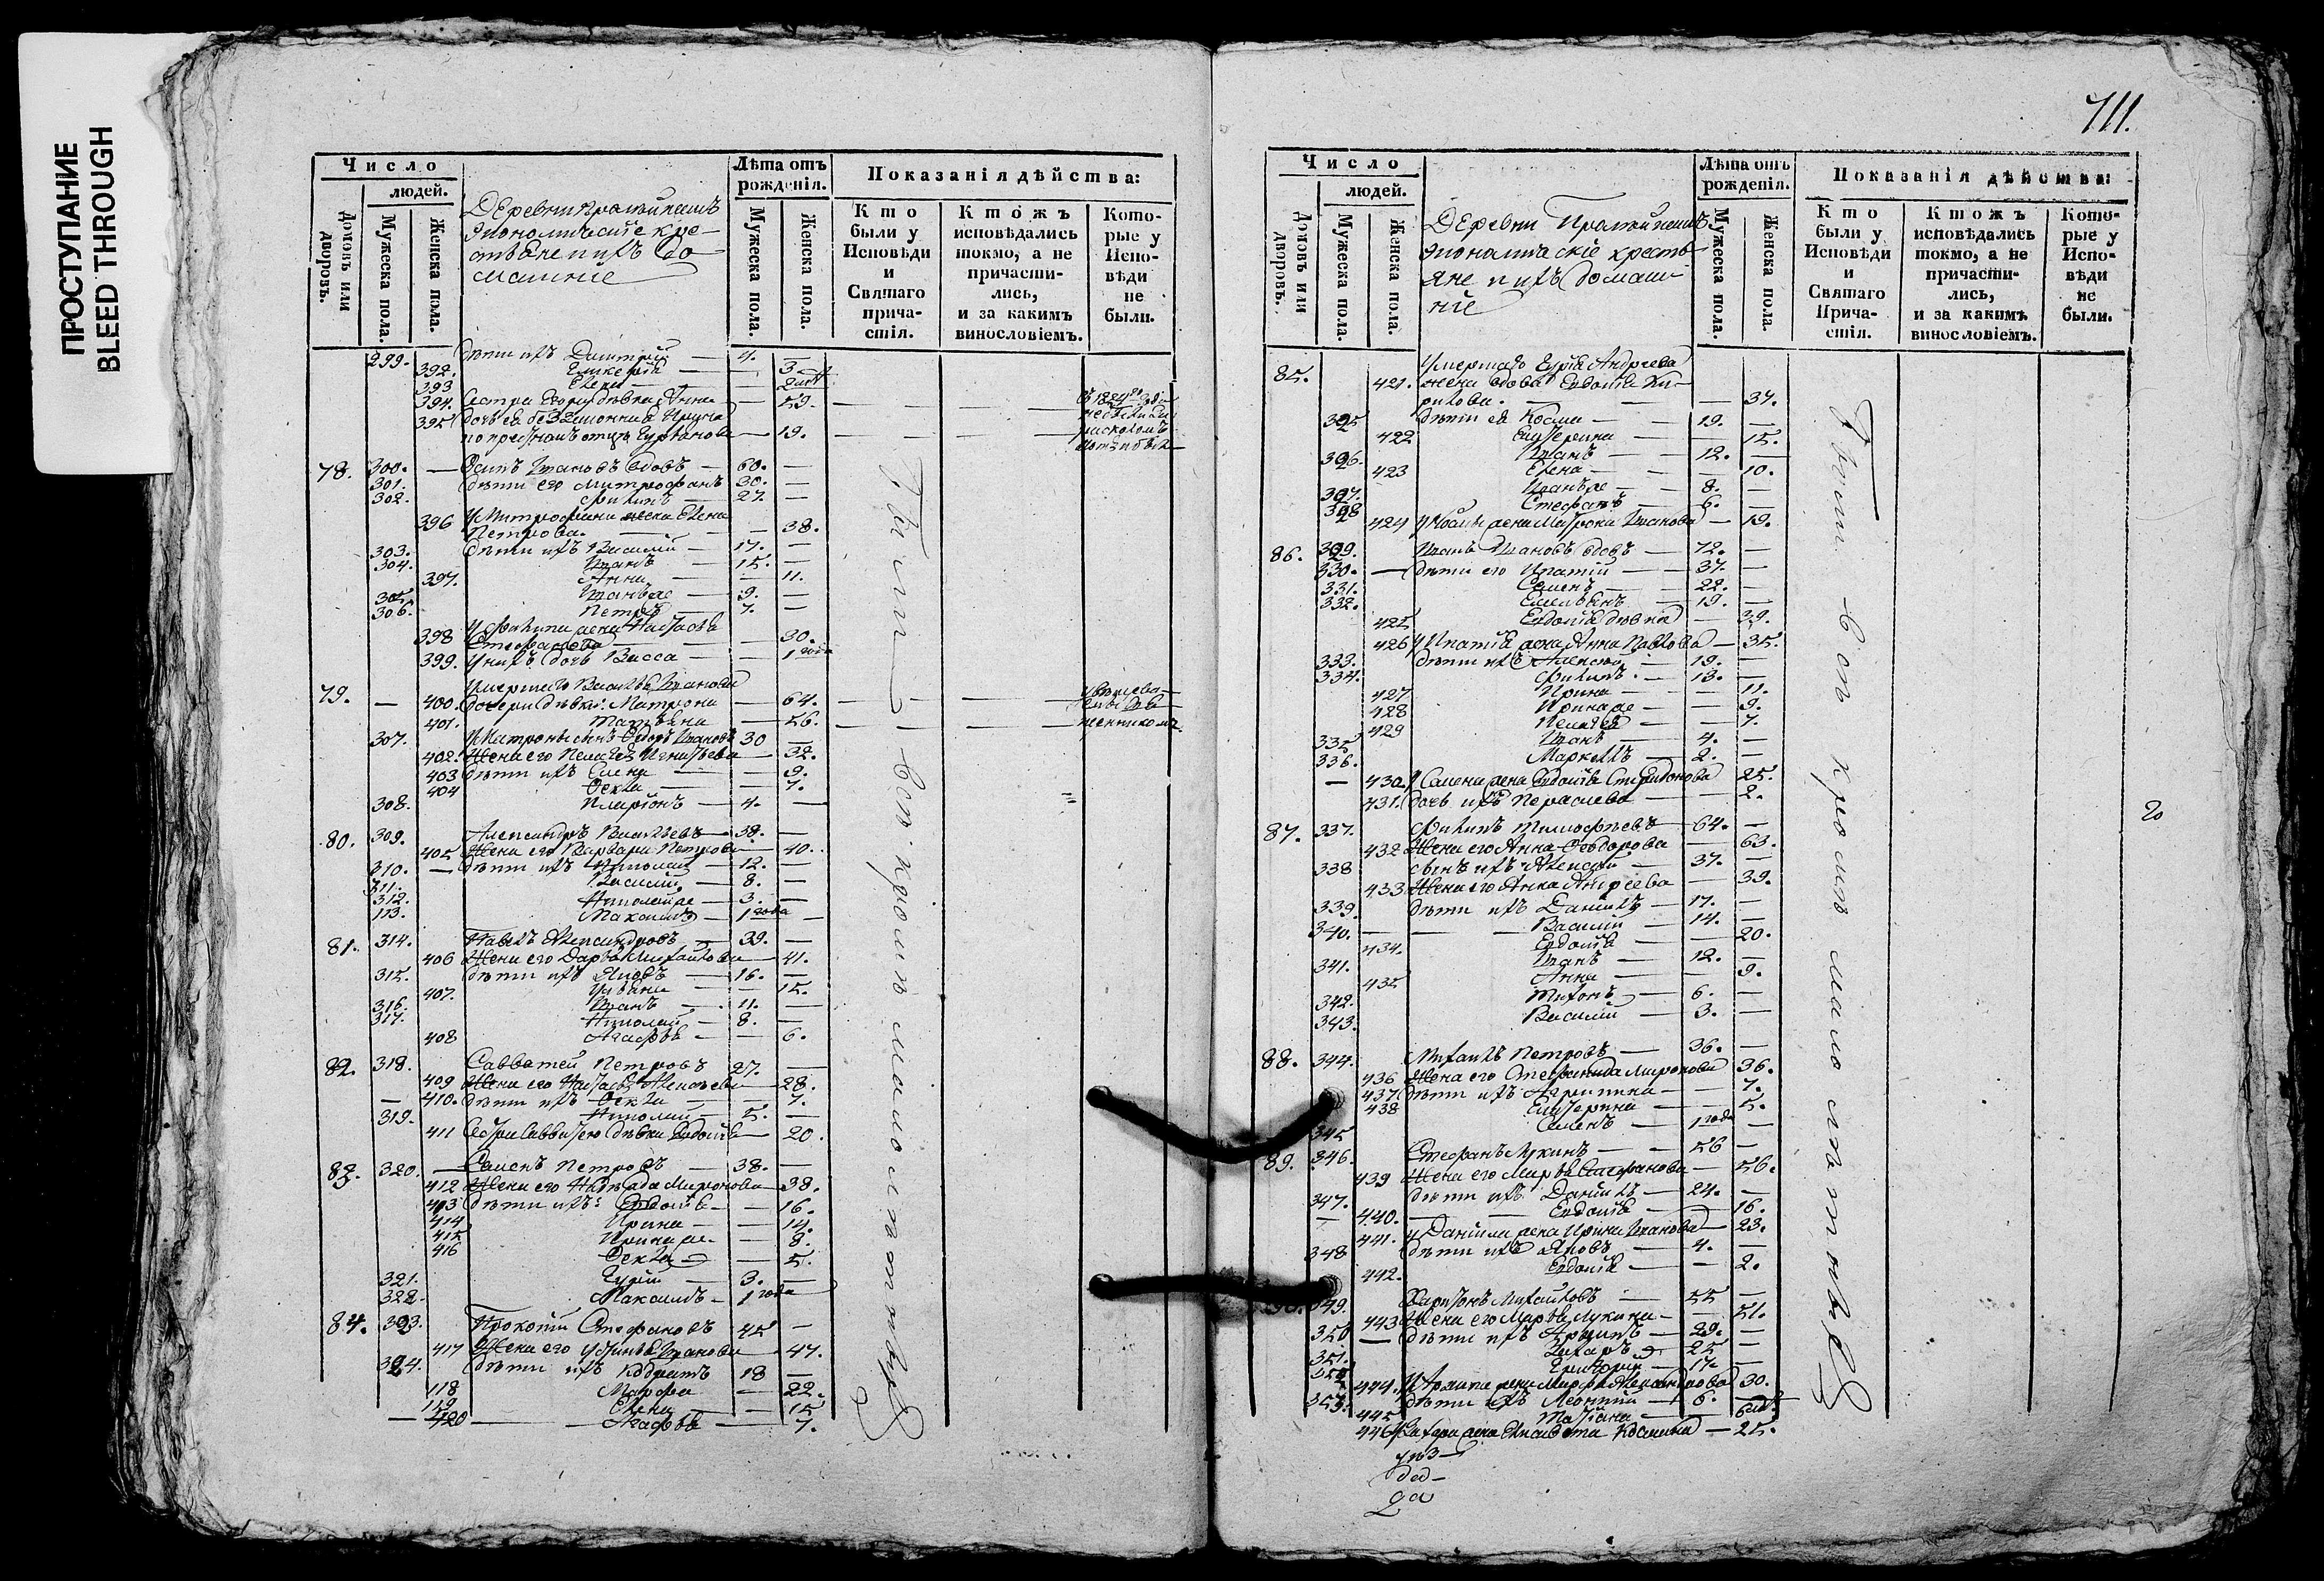 ПРОСТУПАНИЕ
BLEED THROUGH
Число
людей.
Домовъ или дворовъ.
Мужеска пола.
Женска пола.
Деревни
Экономическіе кре-
стьяне и ихъ до-
машніе
Лѣта отъ рожденія.
Мужеска пола.
Женска пола.
Показанія дѣйства:
Кто были у Исповѣди и Святаго прича-стія.
Ктожъ исповѣдались токмо, а не причасти-лись, и за какимъ винословіемъ.
Кото-рые у Испо-вѣди не были.
299. дѣти ихъ Дмитрій — 4. —
392. Гликерія — — 3
393 Елена — —
394. Сестра дѣвка Анна — — 59.
395 дочь ея беззаконная Ирина
— 19.
78. 300. — Осипъ Ивановъ вдовъ — 60. —
301. дѣти его Митрофанъ 30. —
302. Филипъ — 27. —
396 у Митрофана жена Елена
Петрова. — — 38.
303. дѣти ихъ Василій — 17. —
304. Иванъ — 15. —
397. Анна — — 11.
305 Иванъ же — 9. —
306. Петръ — 7. —
398 у Филипа жена Настасья
Стефанова — — 30.
399. у нихъ дочь Васса — — 1 года
Умершаго Василья Иванова
79. — 400. дочери дѣвки: Матрона — 64. —
401. Татьяна — 56. —
307. у Матроны сынъ Ѳедоръ Ивановъ 30 —
402. Жена его Пелагея Игнатьева — 32.
403 дѣти ихъ Елена — — 9.
404 Ѳекла — — 7.
308. Иларіонъ — 4. —
80. 309. Александръ Васильевъ — 38. —
405 Жена его Варвара Петрова — 40.
310. — дѣти ихъ Николай — 12. —
311. Василій — 8. —
312. Николай же — 3. —
113. Максимъ — 1 года —
81. 314. Павелъ Александровъ — 39. —
406 Жена его Дарья Михайлова — 41.
315. дѣти ихъ Яковъ — 16. —
407. Ульяна — — 15.
316. Иванъ — 11. —
317. Николай — 8. —
408 Агафья — — 6.
82. 318. Савватей Петровъ 27. —
409 Жена его Настасья Алексѣева — 28.
— 410. дѣти ихъ Ѳекла — — 7.
319. Николай — 5. —
411 Сестра Савватею дѣвка Евдокія — 20.
83. 320. — Семенъ Петровъ — 38. —
412 Жена его Надежда Миронова — 38.
413 дѣти ихъ: Евдокія — — 16.
414 Ирина — — 14.
415 Ирина же — — 8.
416 Ѳекла — — 5.
321. Гурій — 3. —
322. Максимъ — 1 года —
84. 323. Прокопій Стефановъ 45 —
417 Жена его Устинья Иванова — 47.
324. дѣти ихъ Кодратъ 18 —
118 Марфа — 22.
119 Елена — — 15
— 420 — Агафья — 7.
Бытіи всѣ кромѣ малолѣтныхъ
711.
Число
людей.
Домовъ или дворовъ.
Мужеска пола.
Женска пола.
Деревни
Экономическіе кресть-
яне и ихъ домаш-
ніе
Лѣта отъ рожденія.
Мужеска пола.
Женска пола.
Показанія дѣйства:
Кто были у Исповѣди и Святаго Прича-стія.
Ктожъ исповѣдались токмо, а не причасти-лись, и за какимъ винословіемъ.
Кото-рые у Испо-вѣди не были.
Умершаго Гурія Андреева
85. 421. жена вдова Евдокія Ки-
рилова. — — 37.
325 дѣти ея Косма — 19. —
422 Екатерина — — 15.
326. Иванъ — 12. —
423 Елена — — 10.
327. Иванъ же — 8. —
328 Стефанъ — 6. —
424 у Космы жена Матрона Иванова — 19.
86. 329. Иванъ Ивановъ вдовъ — 72. —
330. — дѣти его Ипатій — 37. —
331. Семенъ — 22. —
332. Емельянъ — 19. —
425 Евдокія дѣвка — 39.
426 у Ипатія жена Анна Павлова — 35.
333. дѣти ихъ Алексѣй — 19. —
334. Филипъ — 13. —
427 Ирина — — 11.
428 Ирина же — — 9.
429 Пелагея — — 7.
335 Иванъ — 4. —
336. Маркеллъ — 2. —
— 430. у Семена жена Евдокія Спиридонова 25.
431. дочь ихъ Парасковья — — 2.
87. 337. Филипъ Тимофѣевъ — 64. —
432 Жена его Анна Ѳеодорова — 63.
338 сынъ ихъ Алексѣй — 37. —
433 Жена его Анна Андреева — 39.
339. дѣти ихъ Даніилъ — 17. —
340. — Василій — 14. —
434. Евдокія — — 20.
341. Иванъ — 12. —
435 Анна — — 9.
342. Тихонъ — 6. —
343. Василій — 3. —
88. 344. Михаилъ Петровъ — 36. —
436 Жена его Стефанида Миронова 36.
437 дѣти ихъ Агрипина — — 7.
438 Екатерина — — 5.
345 Семенъ — 1 года —
89. 346. Стефанъ Лукинъ — 56 —
439 Жена его Марья Стефанова — 56.
347. дѣти ихъ Даніилъ — 24. —
— 440. Евдокія — — 16.
441. у Даніила жена Ирина Иванова — 23.
348 дѣти ихъ Яковъ — 4. —
442. Евдокія — — 2.
349. Харитонъ Михайловъ — 55 —
443 Жена его Марья Лукина — 51.
350 — дѣти ихъ Архипъ — 29. —
351. Захаръ — 25 —
352 Григорій — 17. —
444. у Архипа жена Марфа 30.
353. дѣти ихъ Леонтій — 6. —
445 Татіана —
446 у Захара жена Елисавета Космина — 25.
Бытіи всѣ кромѣ малолѣтныхъ